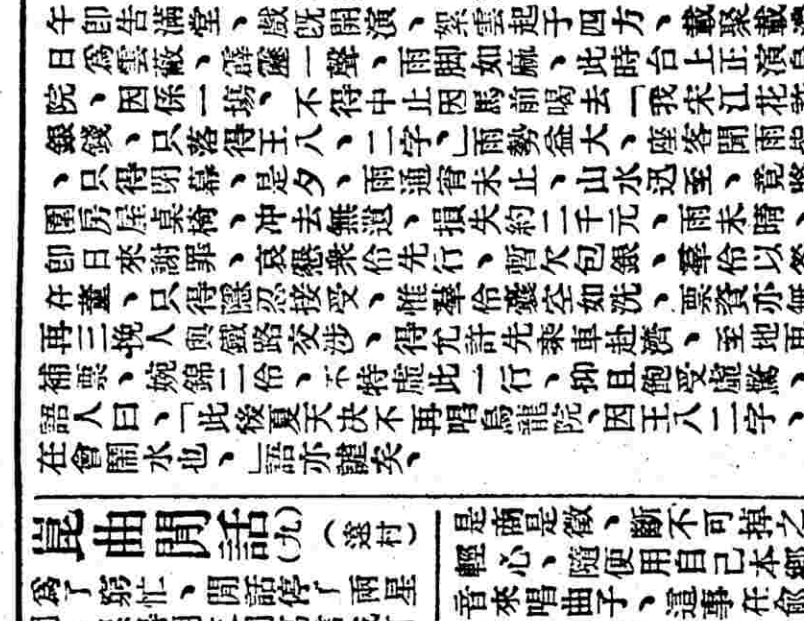 午卽告滿堂、戲旣開演、絮雲起于四方、載聚載
日爲雲蔽、霹靂一聲、雨脚如麻、此時台上正演
院、因係一塲、不得中止因馬前喝去「我宋江花
銀錢、只落得王八、二字、」雨勢益大、座客聞雨
、只得閉幕、是夕、雨通宵未止、山水迅至、竟
園房屋桌椅、冲去無遺、損失約二千元、雨未晴、
卽日來謝罪、哀懇衆伶先行、暫欠包銀、羣伶以
在董、只得隱忍接受、惟羣伶囊空如洗、票資亦無
再三挽人與鐵路交涉、得允許先乘車赴濟、至地再
補票、婉錦二伶、不特虛此一行、抑且飽受虛驚、
語人曰、「此後夏天决不再唱烏龍院、因王八二字、
在會鬧水也、」語亦謔矣、
崑曲閒話(九) (途村)
爲了窮忙、閒話停了兩星
是商是徵、斷不可掉之
輕心、隨便用自己本鄉
音來唱曲子、這事在